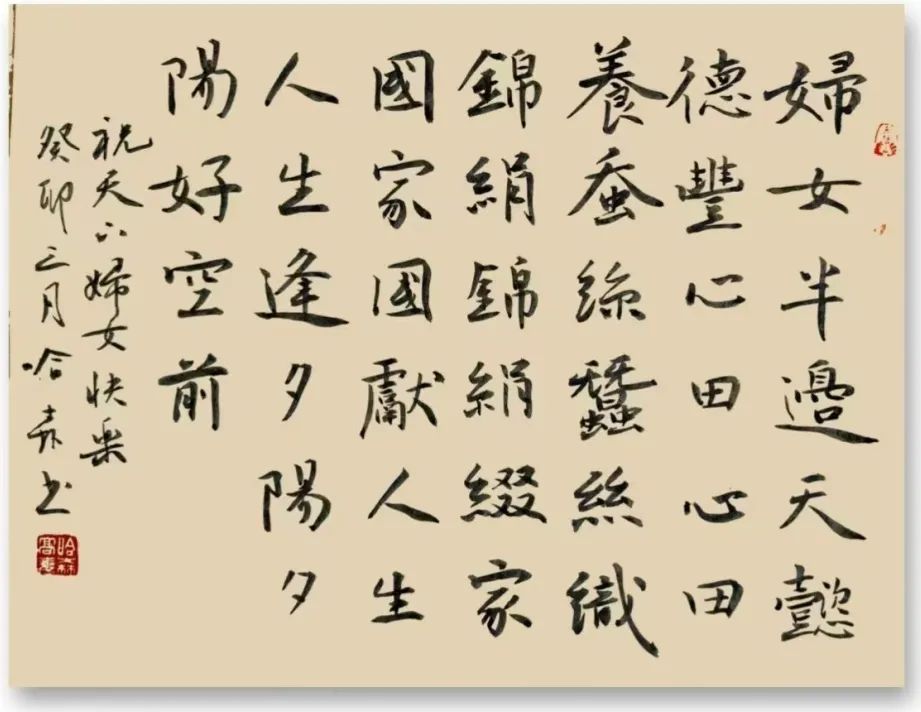 婦女半邊天懿
德豐心田心田
養蚕絲蠶絲織
錦絹錦絹綴家
國家國獻人生
人生逢夕陽夕
陽好空前
祝天下婦女快樂
癸卯三月哈森书